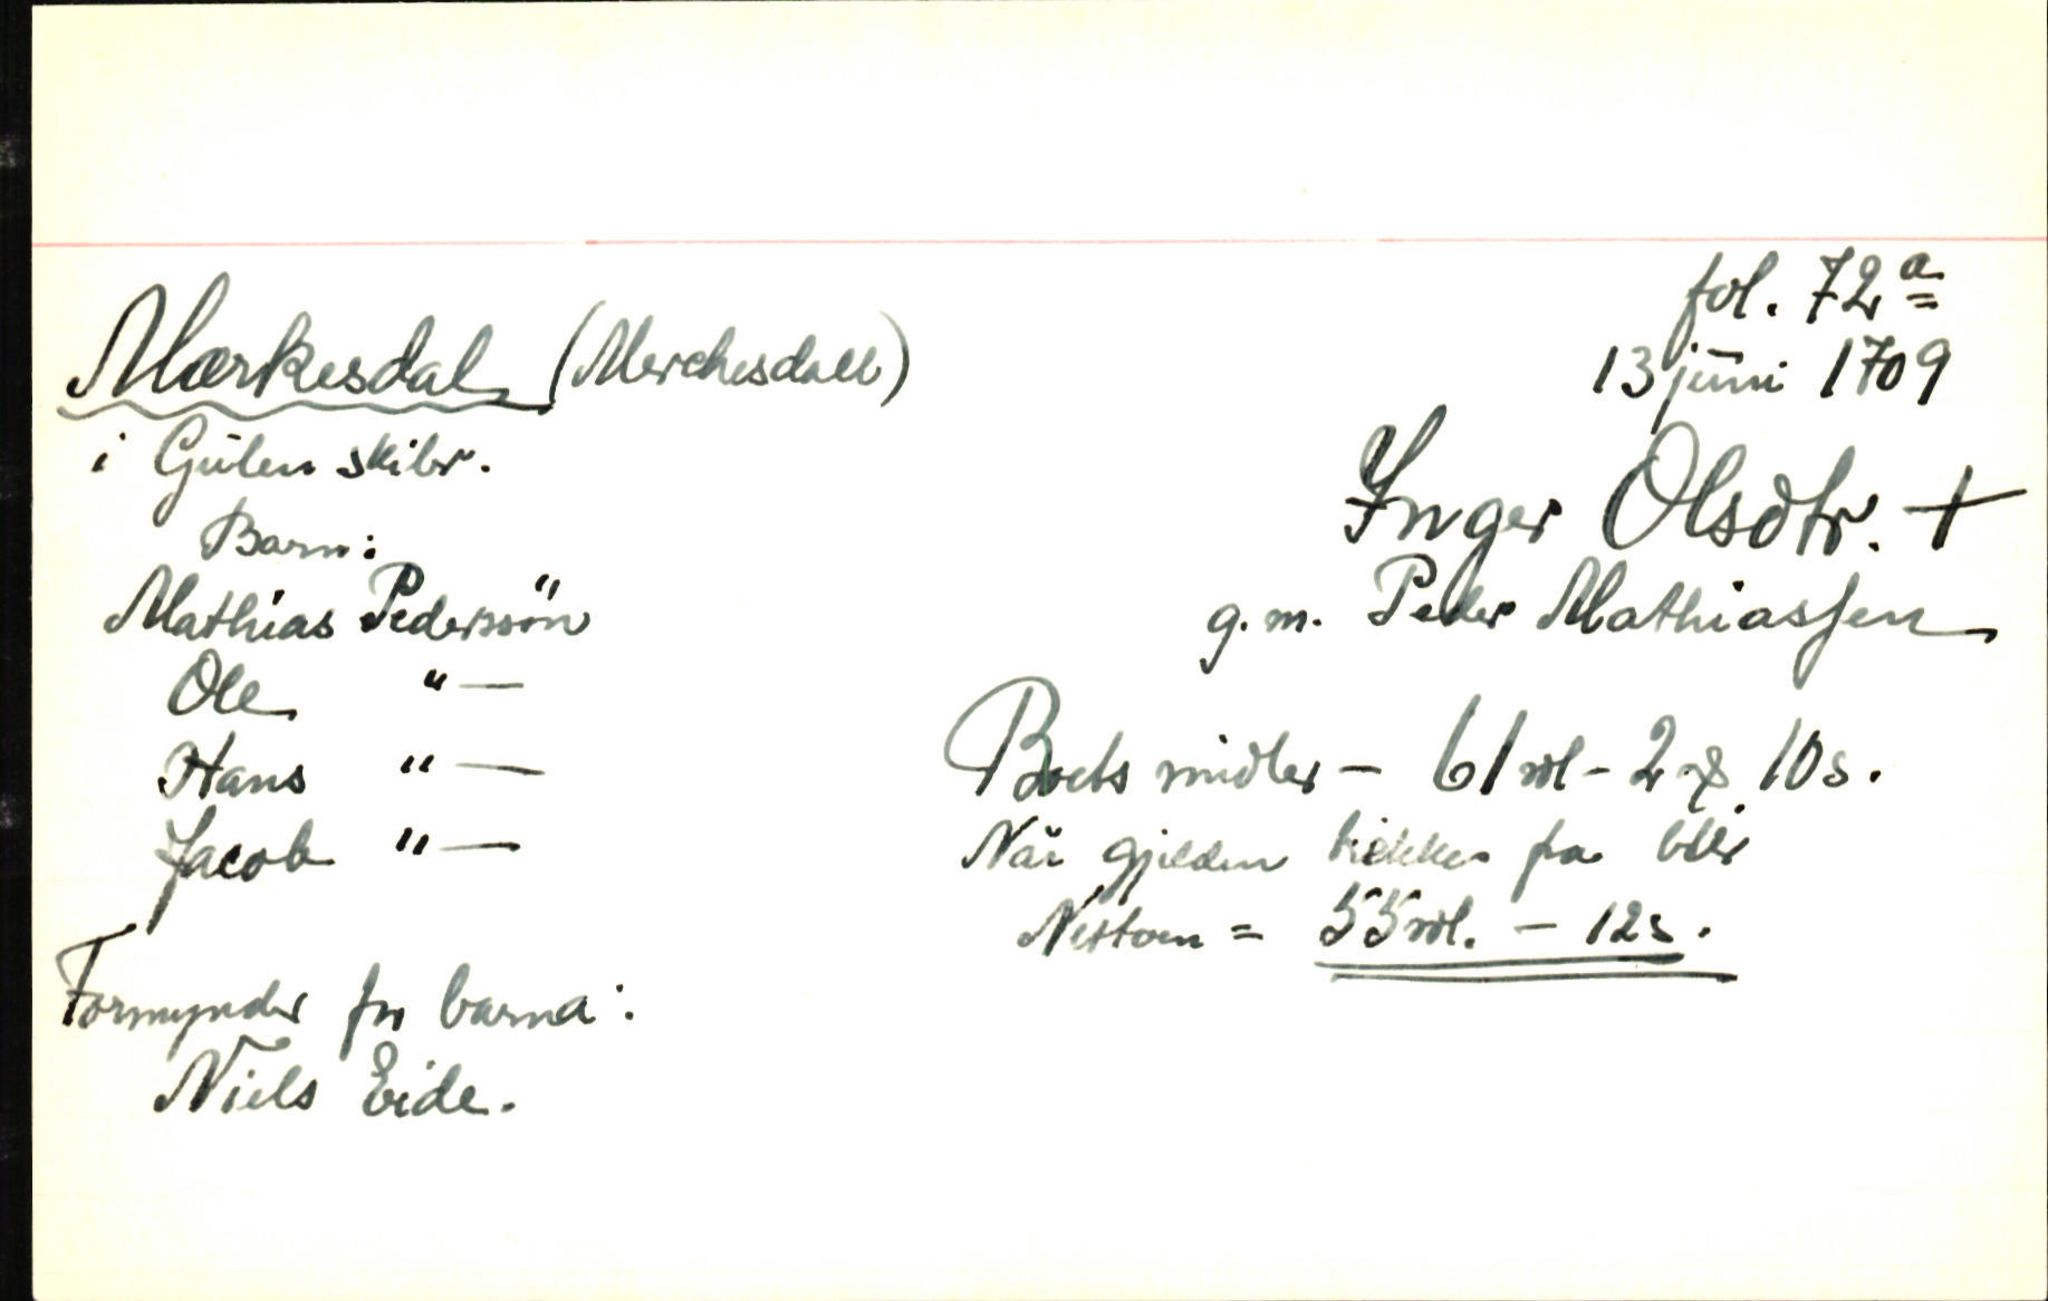 fol. 72 a
13 juni 1709
Mærkesdal (Merchesdall)
i Gulen skibr.
Inger Olsdtr. +
g.m. Peder Mathiassen
Barn:
Mathias Pederssön
Ole "—
Hans "—
Jacob "—
Boets midler – 61 rdl – 2 10 s.
Når gjelden trekkes fra blir
Nettoen = 55 rdl. – 12 s.
Formynder for barna:
Niels Eide.